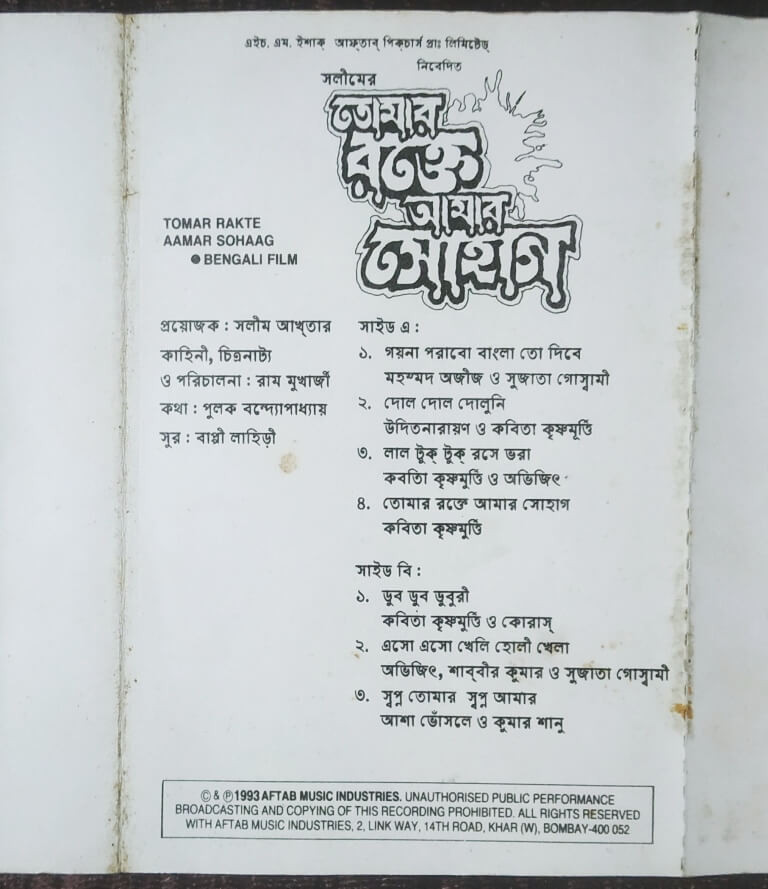 এইচ. এম. ইশাক্ আফ্তাব্ পিক্চার্স প্রাঃ লিমিটেড্
নিবেদিত
সলীমের
তোমার
রক্তে
আমার
সোহাগ
TOMAR RAKTE
AAMAR SOHAAG
● BENGALI FILM
প্রয়োজক : সলীম আখ্তার
কাহিনী, চিত্রনাট্য
ও পরিচালনা : রাম মুখার্জী
কথা : পুলক বন্দ্যোপাধ্যায়
সুর : বাপ্পী লাহিড়ী
সাইড এ :
১. গয়না পরাবো বাংলা তো দিবে
মহম্মদ অজীজ ও সুজাতা গোস্বামী
২. দোল দোল দোলুনি
উদিতনারায়ণ ও কবিতা কৃষ্ণমূর্ত্তি
৩. লাল টুক্ টুক্ রসে ভরা
কবতিা কৃষ্ণমুর্ত্তি ও অভিজিৎ
৪. তোমার রক্তে আমার সোহাগ
কবিতা কৃষ্ণমুর্ত্তি
সাইড বি :
১. ডুব ডুব ডুবুরী
কবিতা কৃষ্ণমুর্ত্তি ও কোরাস্
২. এসো এসো খেলি হোলী খেলা
অভিজিৎ, শাব্বীর কুমার ও সুজাতা গোস্বামী
৩. স্বপ্ন তোমার স্বপ্ন আমার
আশা ভোঁসলে ও কুমার শানু
© & ℗ 1993 AFTAB MUSIC INDUSTRIES. UNAUTHORISED PUBLIC PERFORMANCE
BROADCASTING AND COPYING OF THIS RECORDING PROHIBITED. ALL RIGHTS RESERVED
WITH AFTAB MUSIC INDUSTRIES, 2, LINK WAY, 14TH ROAD, KHAR (W), BOMBAY-400 052